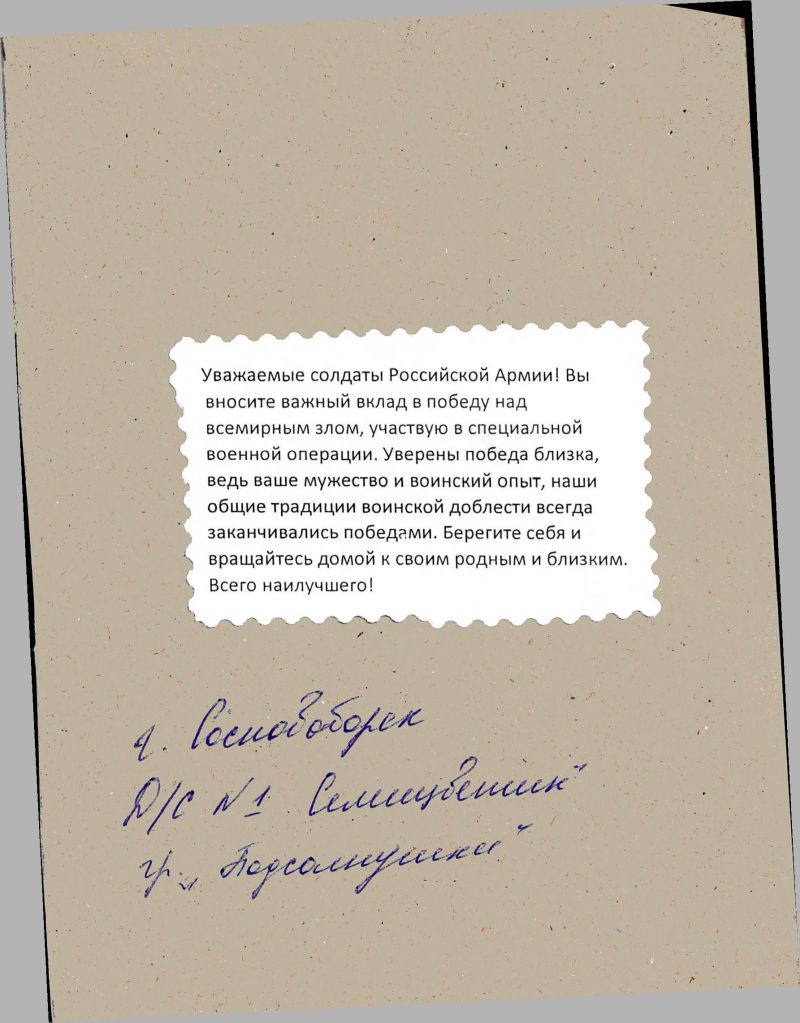 Уважаемые солдаты Российской Армии! Вы
вносите важный вклад в победу над
всемирным злом, участвую в специальной
военной операции. Уверены победа близка,
ведь ваше мужество и воинский опыт, наши
общие традиции воинской доблести всегда
заканчивались победами. Берегите себя и
вращайтесь домой к своим родным и близким.
Всего наилучшего!
г. Сосновоборск
Д/С №1 Семицветик"
гр. „Подсолнушки"